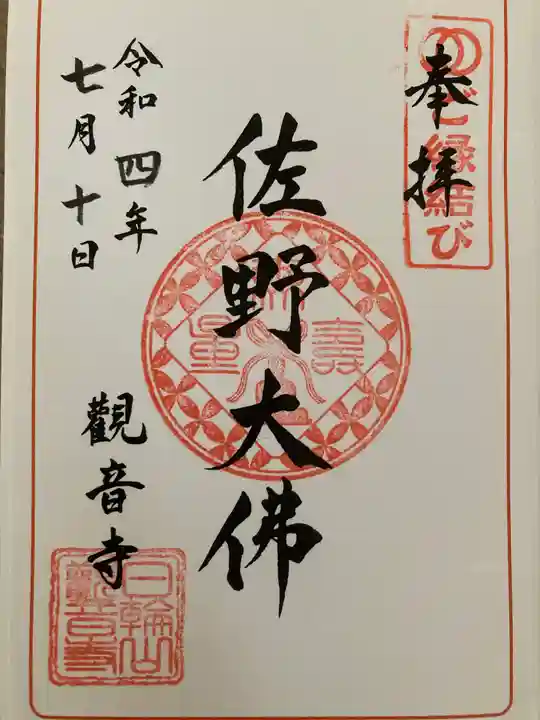 奉拝
ご縁結び
佐野大佛
無量壽
令和四年
七月十日
觀音寺
日輪山
觀音寺